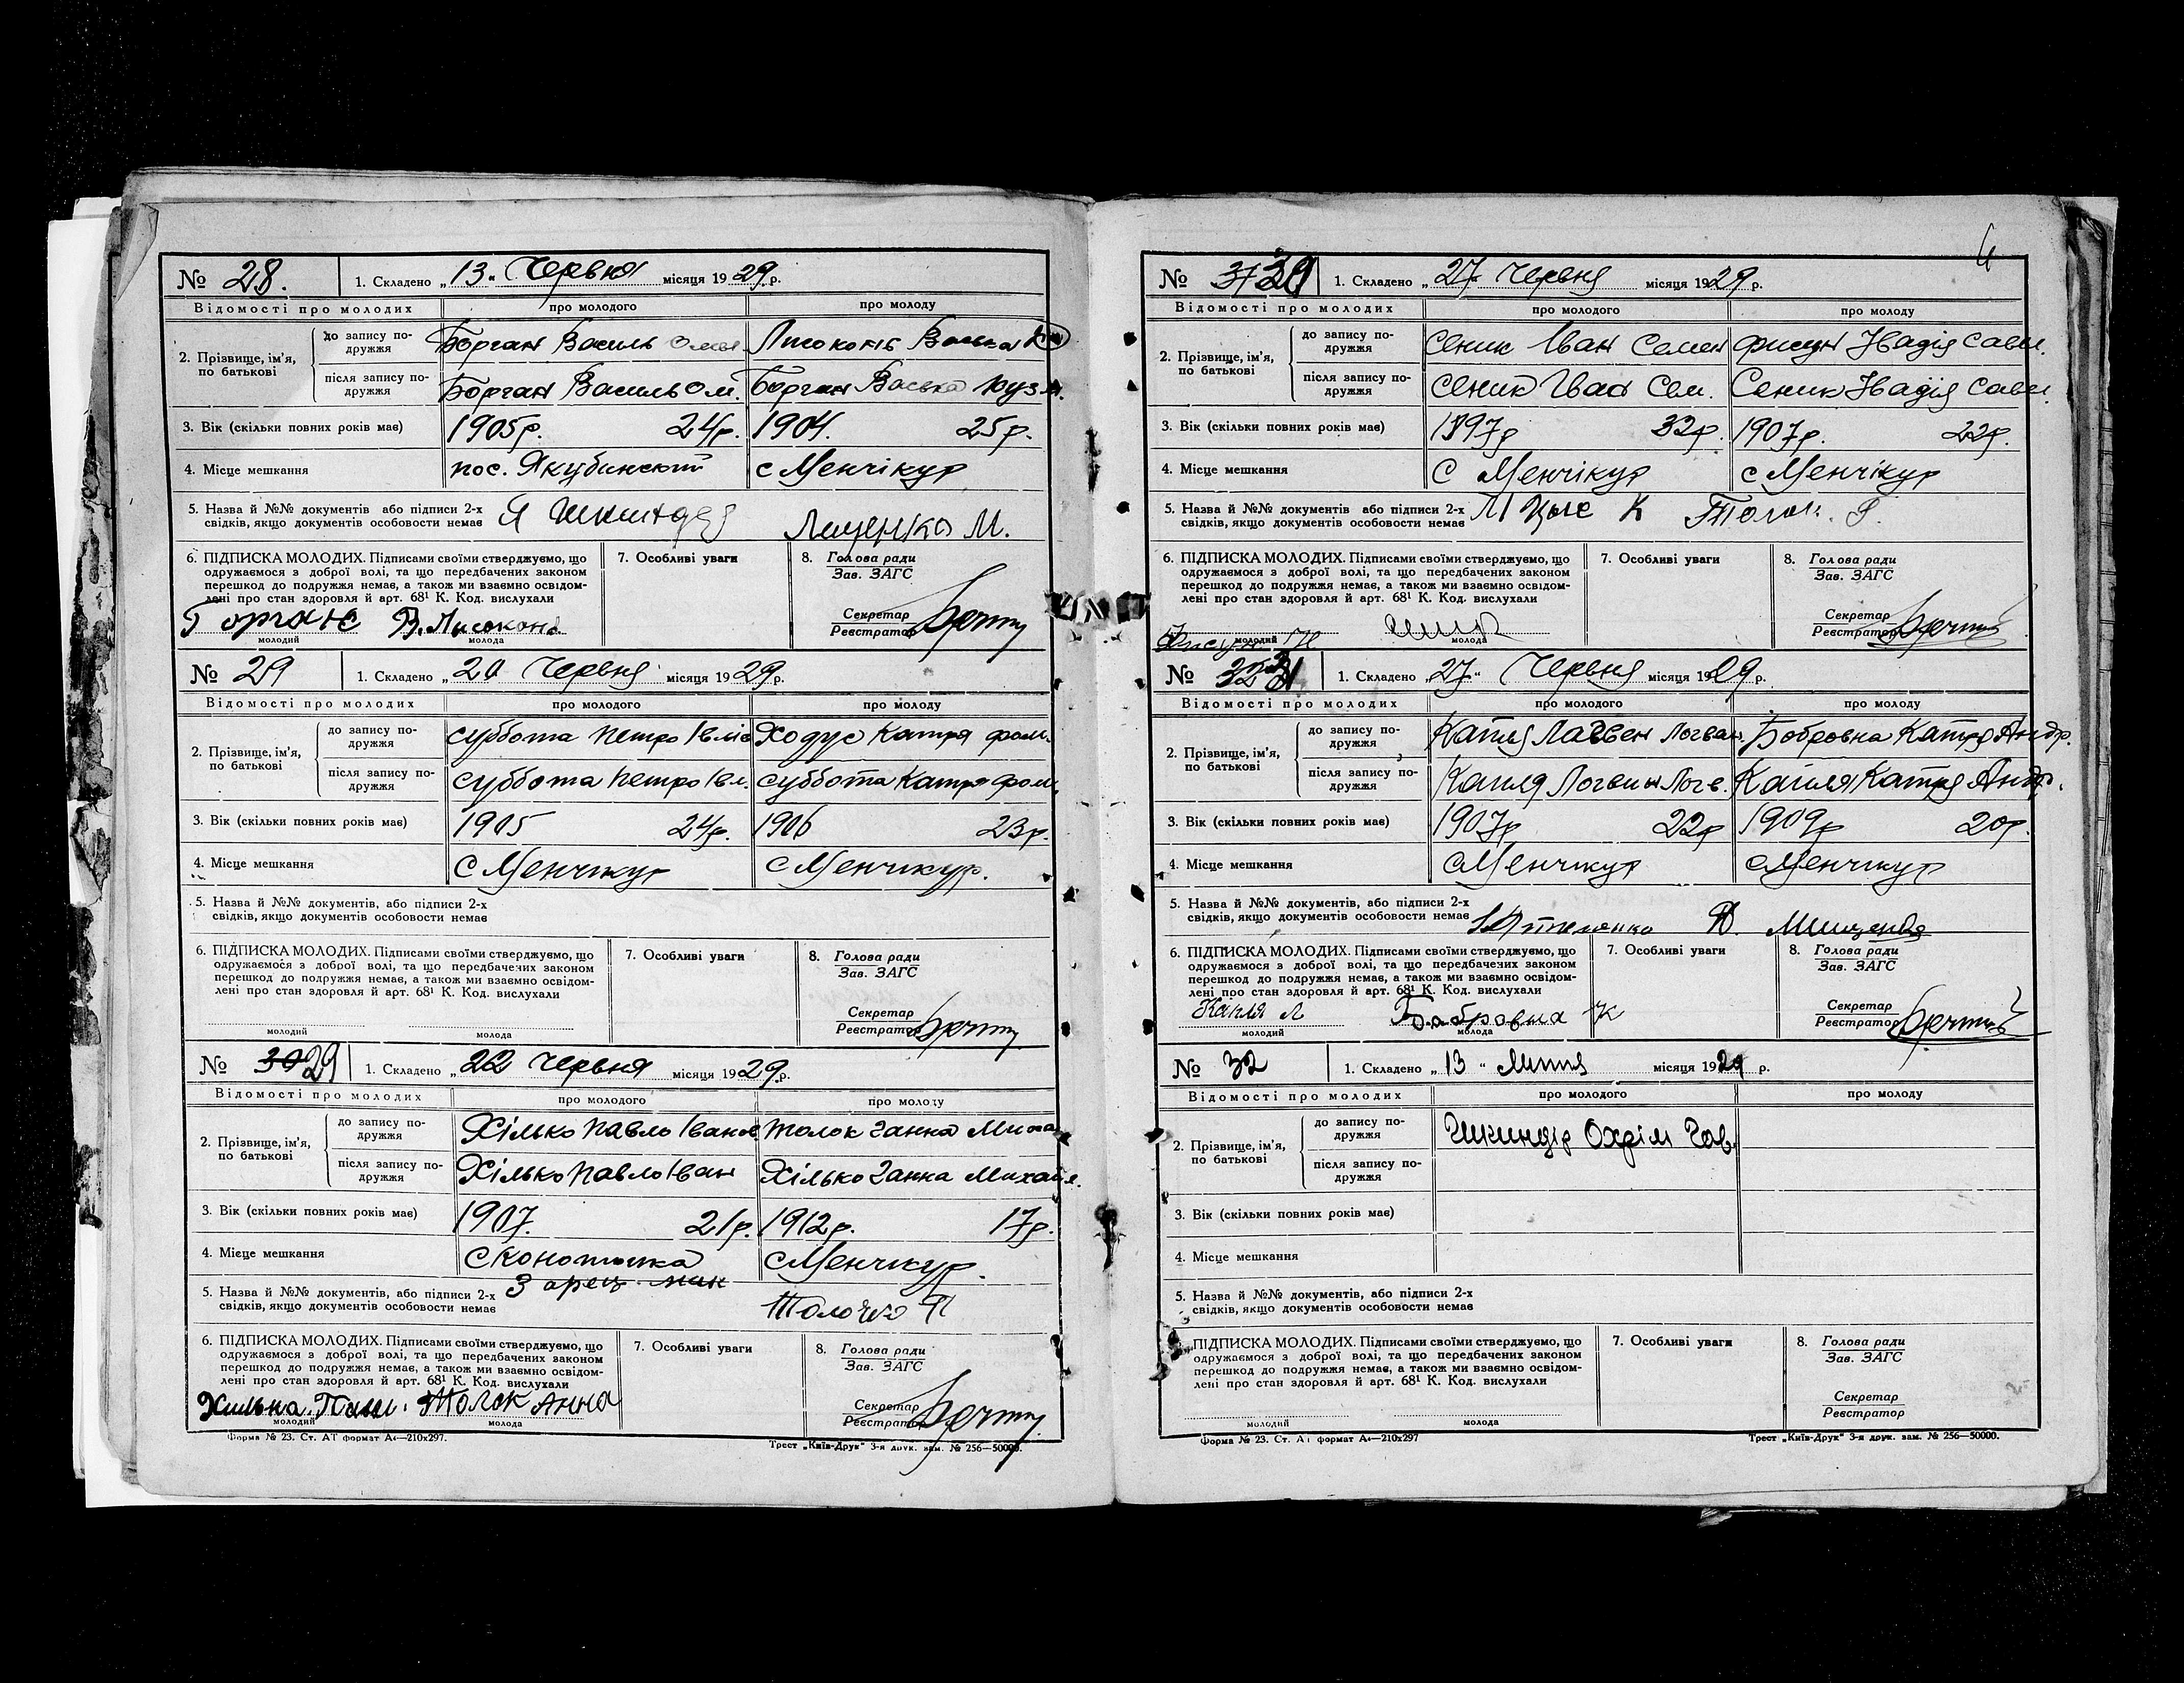 № 28. 1. Складено „13" Червня місяця 1929 р.
Відомості про молодих про молодого про молоду
2. Прізвище, ім'я, по батькові
до запису подружжя Борган Василь Омел. Лисоконь Васька
після запису подружжя Борган Василь Ом. Борган Васька Кузм.
3. Вік (скільки повних років має) 1905р. 24р. 1904. 25р.
4. Місце мешкання пос. Якубинский с Менчікур
5. Назва й №№ документів або підписи 2-х
свідків, якщо документів особовости немає Лищенко М.
6. ПІДПИСКА МОЛОДИХ. Підписами своїми стверджуємо, що
одружаємося з доброї волі, та що передбачених законом
перешкод до подружжя немає, а також ми взаємно освідом-
лені про стан здоровля й арт. 68¹ К. Код. вислухали
7. Особливі уваги
8. Голова ради
Зав. ЗАГС
Секретар
Реєстратор
В. Лисоконь
молодий молода
№ 29 1. Складено „20 Червня місяця 1929 р.
Відомості про молодих про молодого про молоду
2. Прізвище, ім'я, по батькові
до запису подружжя Суббота Петро Ходус Катря Фом.
після запису подружжя Суббота Петро Суббота Катря Фом.
3. Вік (скільки повних років має) 1905 24р. 1906 23р.
4. Місце мешкання с Менчикур с Менчикур.
5. Назва й №№ документів, або підписи 2-х
свідків, якщо документів особовости немає
6. ПІДПИСКА МОЛОДИХ. Підписами своїми стверджуємо, що
одружаємося з доброї волі, та що передбачених законом
перешкод до подружжя немає, а також ми взаємно освідом-
лені про стан здоровля й арт. 68¹ К. Код. вислухали
7. Особливі уваги
8. Голова ради
Зав. ЗАГС
Секретар
Реєстратор
молодий молода
№ 30 29 1. Складено „22 Червня місяця 1929 р.
Відомості про молодих про молодого про молоду
2. Прізвище, ім'я, по батькові
до запису подружжя Хілько Павло Іванов Толок Ганна Миха
після запису подружжя Хілько Павло Іван Хілько Ганна Михайл.
3. Вік (скільки повних років має) 1907. 21р. 1912р. 17р.
4. Місце мешкання с Менчикур.
5. Назва й №№ документів, або підписи 2-х
свідків, якщо документів особовости немає
6. ПІДПИСКА МОЛОДИХ. Підписами своїми стверджуємо, що
одружаємося з доброї волі, та що передбачених законом
перешкод до подружжя немає, а також ми взаємно освідом-
лені про стан здоровля й арт. 68¹ К. Код. вислухали
7. Особливі уваги
8. Голова ради
Зав. ЗАГС
Секретар
Реєстратор
Толок Анна
молодий молода
Форма № 23. Ст. АТ формат А4—210x297. Трест „Київ-Друк" 3-я друк. зам. № 256—50000.
№ 1. Складено „27" Червня місяця 1929 р.
Відомості про молодих про молодого про молоду
2. Прізвище, ім'я, по батькові
до запису подружжя Сеник Іван Семен Фисун Надія Сави.
після запису подружжя Сеник Іван Сем. Сеник Надія Сави.
3. Вік (скільки повних років має) 1897р 32р. 1907р. 22р.
4. Місце мешкання с Менчікур с Менчікур
5. Назва й №№ документів або підписи 2-х
свідків, якщо документів особовости немає
6. ПІДПИСКА МОЛОДИХ. Підписами своїми стверджуємо, що
одружаємося з доброї волі, та що передбачених законом
перешкод до подружжя немає, а також ми взаємно освідом-
лені про стан здоровля й арт. 68¹ К. Код. вислухали
7. Особливі уваги
8. Голова ради
Зав. ЗАГС
Секретар
Реєстратор
Фисун Н
молодий молода
№ 1. Складено „27" Червня місяця 1929 р.
Відомості про молодих про молодого про молоду
2. Прізвище, ім'я, по батькові
до запису подружжя Капля Логвин Логвин. Бобровна Катря Андр.
після запису подружжя Капля Логвин Логв. Капля Катря Андр.
3. Вік (скільки повних років має) 1907р 22р 1909р 20р.
4. Місце мешкання с Менчикур с Менчикур
5. Назва й №№ документів, або підписи 2-х
свідків, якщо документів особовости немає
6. ПІДПИСКА МОЛОДИХ. Підписами своїми стверджуємо, що
одружаємося з доброї волі, та що передбачених законом
перешкод до подружжя немає, а також ми взаємно освідом-
лені про стан здоровля й арт. 68¹ К. Код. вислухали
7. Особливі уваги
8. Голова ради
Зав. ЗАГС
Секретар
Реєстратор
Капля Л Бабровна К
молодий молода
№ 32 1. Складено „13" Липня місяця 1929 р.
Відомості про молодих про молодого про молоду
2. Прізвище, ім'я, по батькові
до запису подружжя Шкиндір Охрім Гав.
після запису подружжя
3. Вік (скільки повних років має)
4. Місце мешкання
5. Назва й №№ документів, або підписи 2-х
свідків, якщо документів особовости немає
6. ПІДПИСКА МОЛОДИХ. Підписами своїми стверджуємо, що
одружаємося з доброї волі, та що передбачених законом
перешкод до подружжя немає, а також ми взаємно освідом-
лені про стан здоровля й арт. 68¹ К. Код. вислухали
7. Особливі уваги
8. Голова ради
Зав. ЗАГС
Секретар
Реєстратор
молодий молода
Форма № 23. Ст. АТ формат А4—210x297 Трест „Київ-Друк" 3-я друк. зам. № 256—50000.